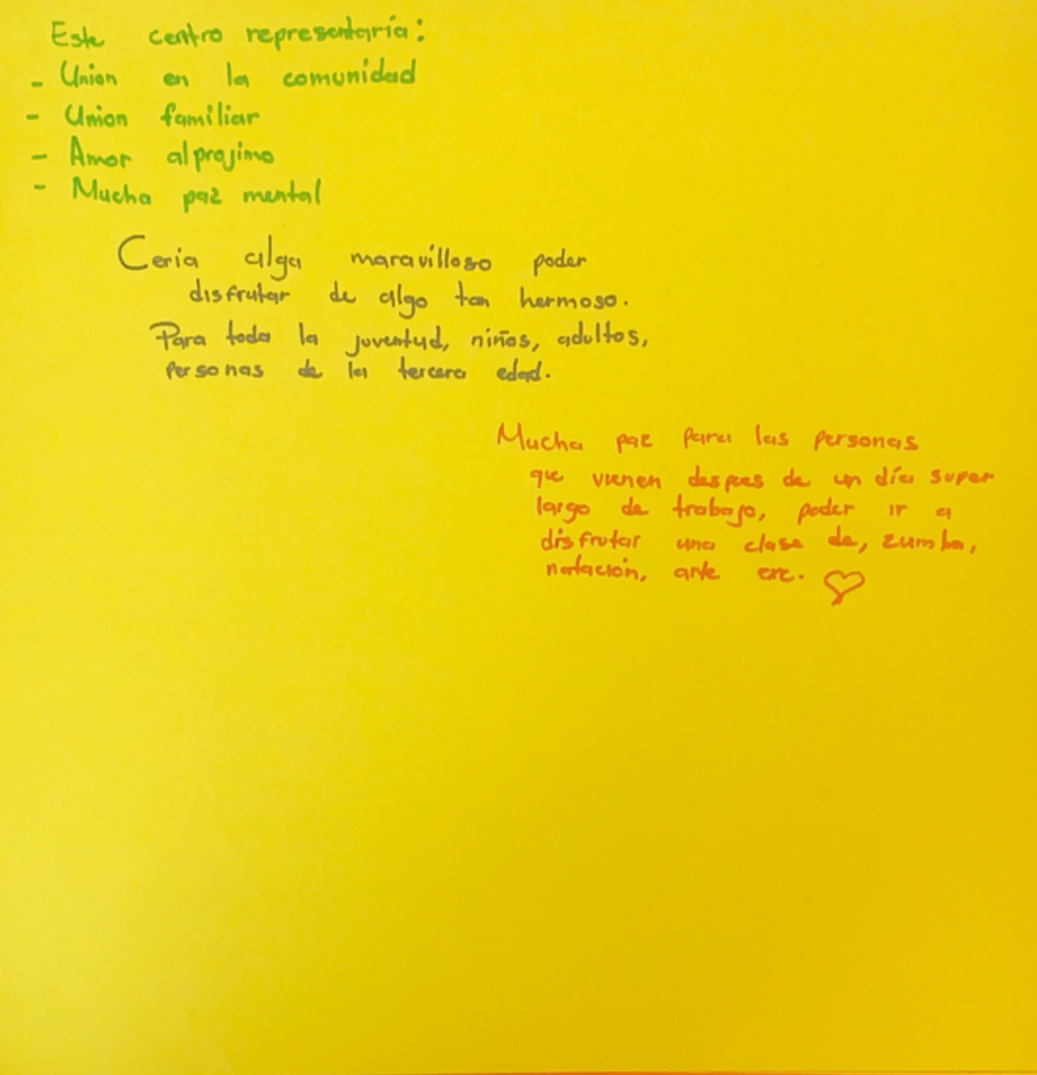 Este centro representaría:
- Union en la comunidad
- Union familiar
- Amor al projimo
- Mucha paz mental
Ceria algo maravilloso poder
disfrutar de algo tan hermoso.
Para toda la juventud, niños, adultos,
personas de la tercera edad.
Mucha paz para las personas
que vienen despues de un día super
largo de trabajo, poder ir a
disfrutar una clase de, zumba,
natación, arte etc.